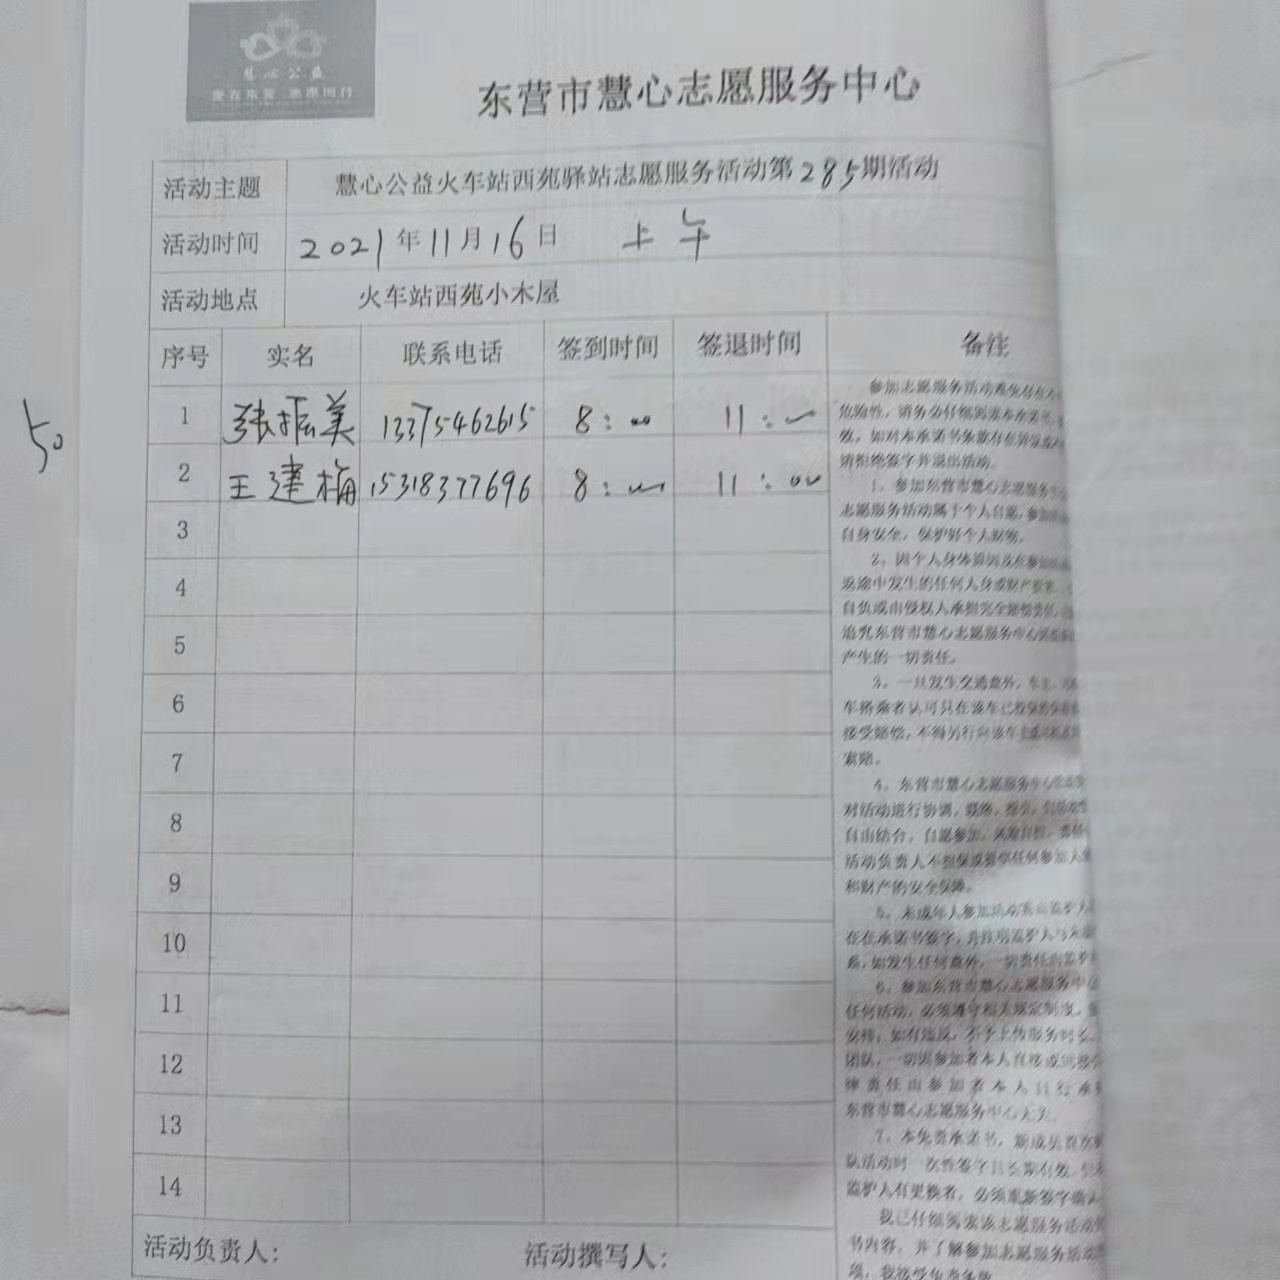 慧心公益
爱在东营 志愿同行
东营市慧心志愿服务中心
活动主题 慧心公益火车站西苑驿站志愿服务活动第285期活动
活动时间 2021年11月16日 上午
活动地点 火车站西苑小木屋
序号 实名 联系电话 签到时间 签退时间 备注
1 张振美 13375462615 8:00 11:00
2 王建梅 15318377696 8:00 11:00
3
4
5
6
7
8
9
10
11
12
13
14
50
参加志愿服务活动难免存在
危险性，请务必仔细阅读本承诺书
效，如对本承诺书条款有任何
请拒绝签字并退出活动。
1、参加东营市慧心志愿服务
志愿服务活动属于个人自愿，参加
自身安全，保护好个人财物。
2、因个人身体原因及在参加
返途中发生的任何人身或财产损害
自负或由侵权人承担完全赔偿责任
追究东营市慧心志愿服务中心
产生的一切责任。
3、一旦发生交通意外，车主
车搭乘者认可只在该车已投保的
接受赔偿，不得另行向该车主
索赔。
4、东营市慧心志愿服务中心
对活动进行协调
自由结合，自愿参加，风险自担
活动负责人不担保或提供任何参加人
和财产的安全保障。
5、未成年人参加活动需由监护人
在在承诺书签字，并注明监护人与未
系，如发生任何意外，一切责任由监护
6、参加东营市慧心志愿服务中心
任何活动，必须遵守相关规定制度
安排，如有违反，不予上传服务时长
团队，一切因参加者本人直接或间接
律责任由参加者本人自行承
东营市慧心志愿服务中心无关。
7、本免责承诺书，新成员首次
队活动时一次性签字且长期有效
监护人有更换者，必须重新签字确认
我已仔细阅读该志愿服务活动
书内容，并了解参加志愿服务活动
活动负责人: 活动撰写人: